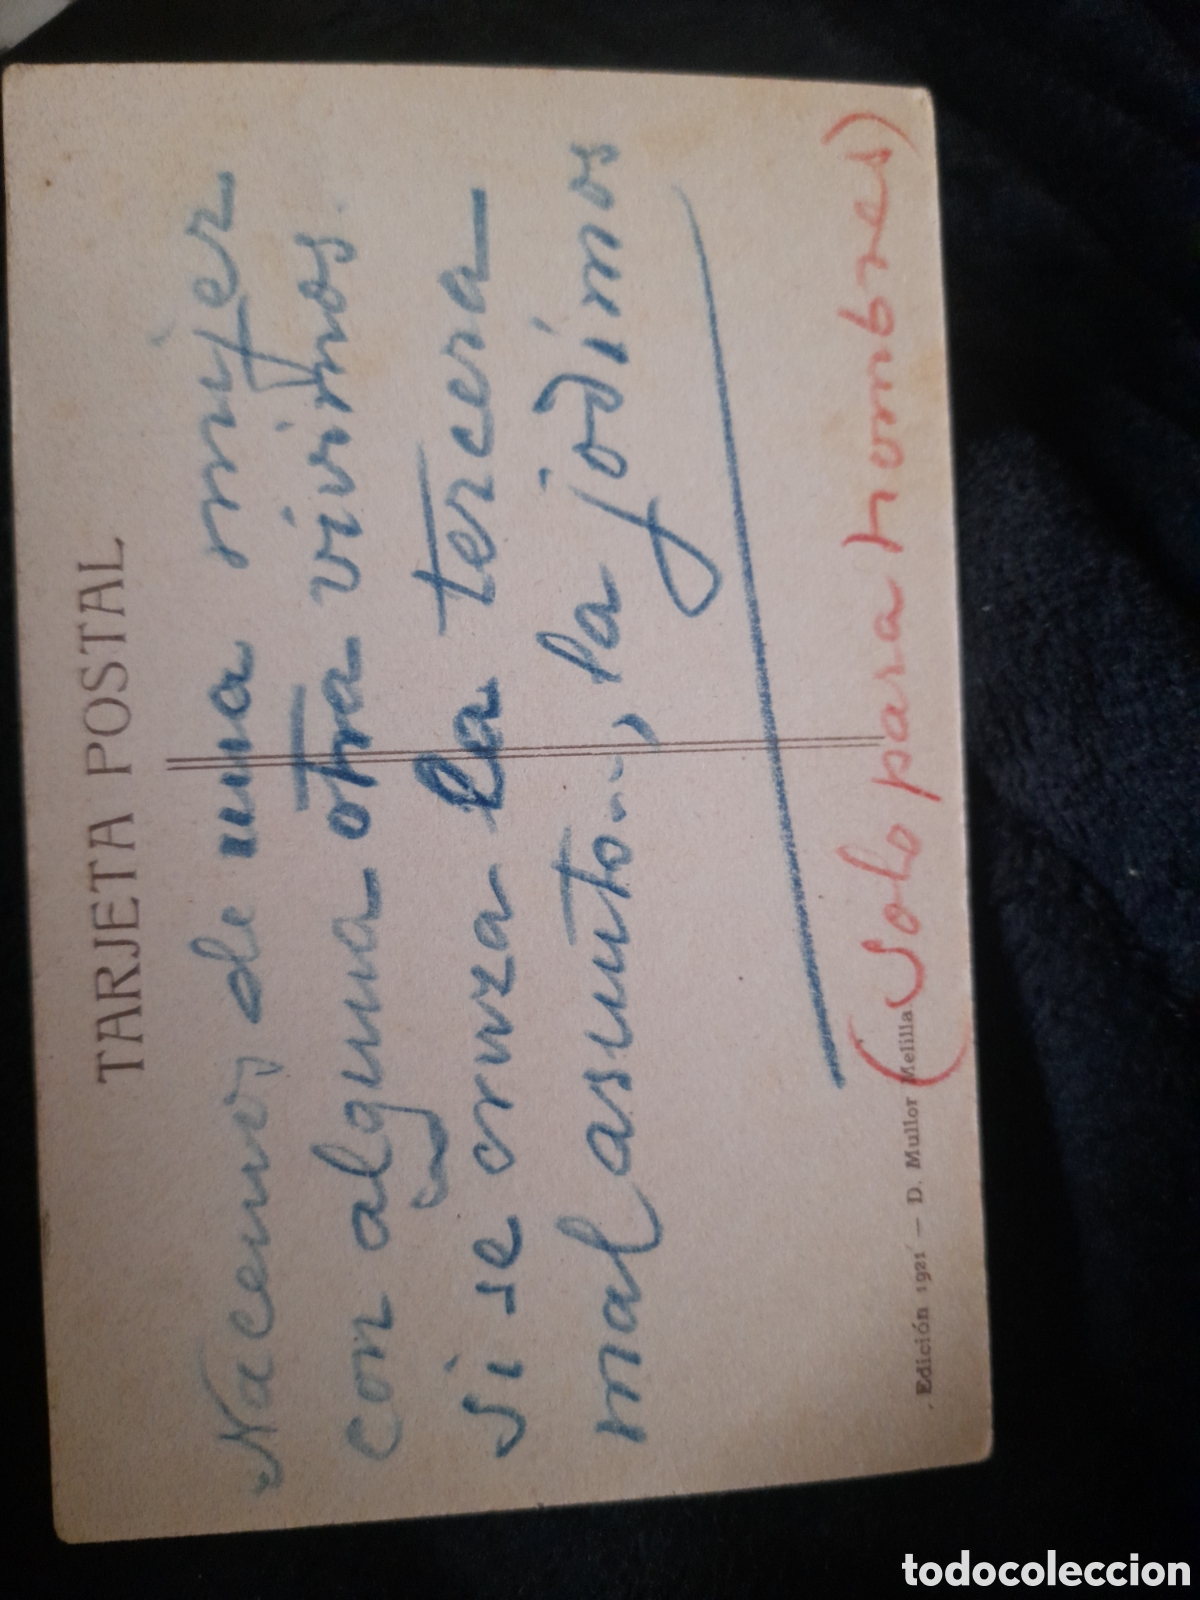 TARJETA POSTAL
Nacemos de una mujer
con alguna otra vivimos.
Si se cruza la tercera
mal asunto..., la jodímos
(Solo para hombres)
Edición 1921 — D. Mullor Melilla.
todocoleccion